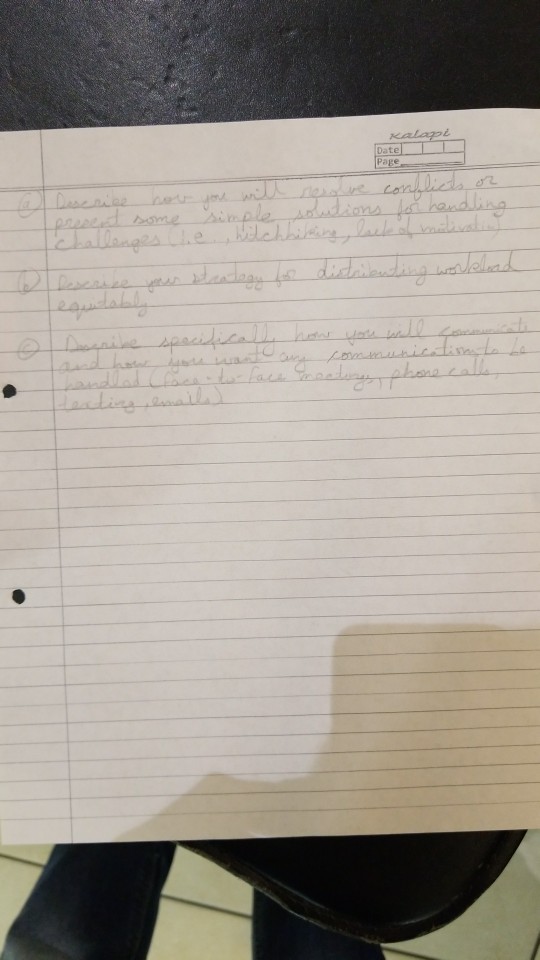 Kalapi
Date
Page
(a) Describe how you will resolve conflicts or
present some simple solutions for handling
challenges (i.e., hitchhiking, lack of motivation)
(b) Describe your strategy for distributing workload
equitably
(c) Describe specifically how you will communicate
and how you want any communication to be
handled (face-to-face meetings, phone calls,
texting, emails)